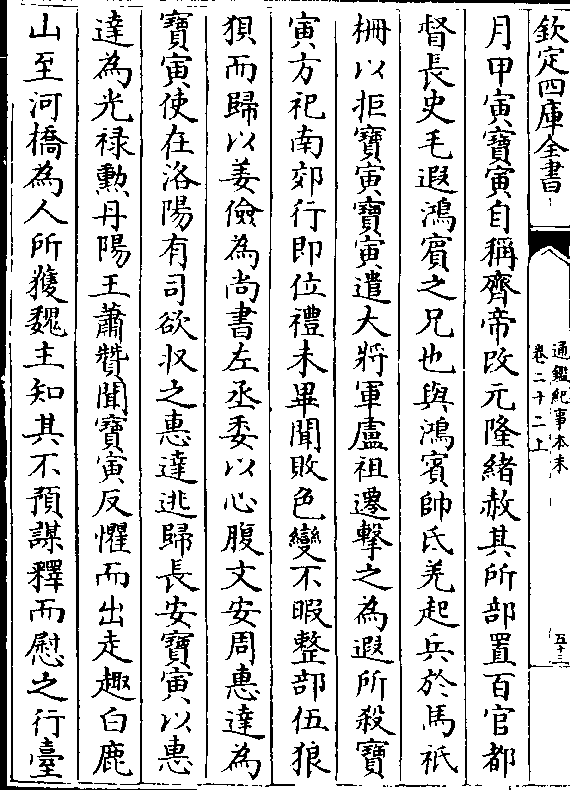 欽定四庫全書
通鑑紀事本末
卷二十二上
五十三
月甲寅寶寅自稱齊帝改元隆緒赦其所部置百官都
督長史毛遐鴻賓之兄也與鴻賓帥氏羌起兵於馬祇
柵以拒寶寅寶寅遣大將軍盧祖遷擊之為遐所殺寶
寅方祀南郊行即位禮未畢聞敗色變不暇整部伍狼
狽而歸以姜儉為尚書左丞委以心腹文安周惠達為
寶寅使在洛陽有司欲収之惠達逃歸長安寶寅以惠
達為光禄勲丹陽王蕭贊聞寶寅反懼而出走趣白鹿
山至河橋為人所獲魏主知其不預謀釋而慰之行臺